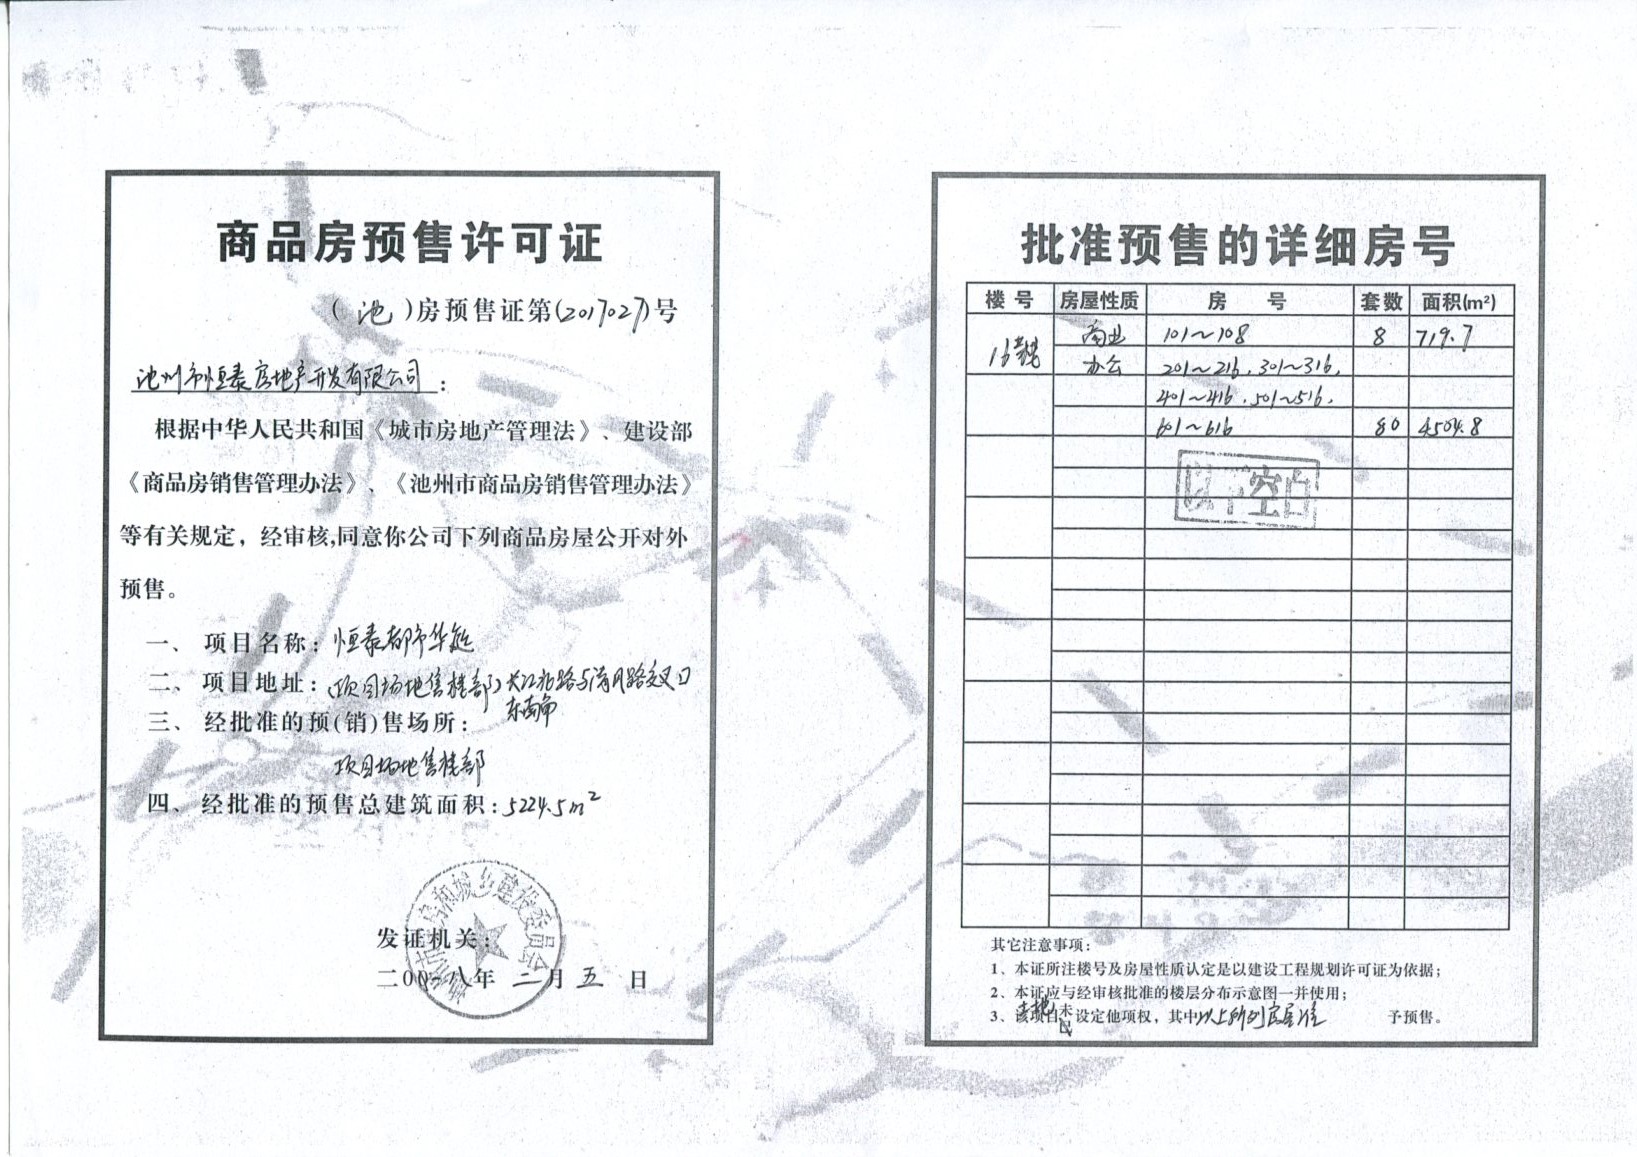 商品房预售许可证
(池)房预售证第(2017027)号
池州市恒泰房地产开发有限公司:
根据中华人民共和国《城市房地产管理法》、建设部
《商品房销售管理办法》、《池州市商品房销售管理办法》
等有关规定,经审核,同意你公司下列商品房屋公开对外
预售。
一、项目名称:恒泰都市华庭
二、项目地址:(项目场地售楼部)长江北路与清风路交叉口
东南角
三、经批准的预(销)售场所:
项目场地售楼部
四、经批准的预售总建筑面积:5224.5m²
房和城乡建设委员会
发证机关:
二00一八年 二月 五 日
批准预售的详细房号
楼号 房屋性质 房号 套数 面积(m²)
16#楼 商业 101~108 8 719.7
办公 201~216、301~316、
401~416、501~516、
601~616 80 4504.8
以下空白
其它注意事项:
1、本证所注楼号及房屋性质认定是以建设工程规划许可证为依据;
2、本证应与经审核批准的楼层分布示意图一并使用;
土地 未
3、该项目已设定他项权,其中以上所列房屋准 予预售。